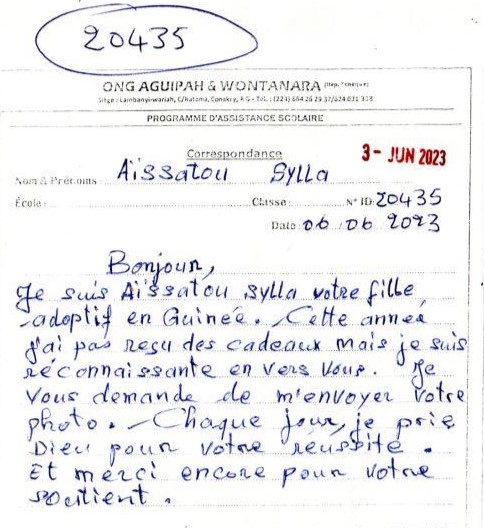 20435
ONG AGUIPAH & WONTANARA (Rep. Tchèque)
Siège : Lambanyi-wariah, C/Ratoma, Conakry, RG - Tél. : (224) 664 26 29 37/624 031 318
PROGRAMME D'ASSISTANCE SCOLAIRE
Correspondance
3 - JUN 2023
Nom & Prénoms : Aïssatou Sylla
École : Classe : N° ID: 20435
Date: 06/06 2023
Bonjour,
Je suis Aïssatou Sylla votre fille
adoptif en Guinée. Cette année
j'ai pas reçu des cadeaux mais je suis
réconnaissante en vers vous. Je
vous demande de m'envoyer votre
photo. Chaque jour, je prie
Dieu pour votre réussite.
Et merci encore pour votre
soutient.